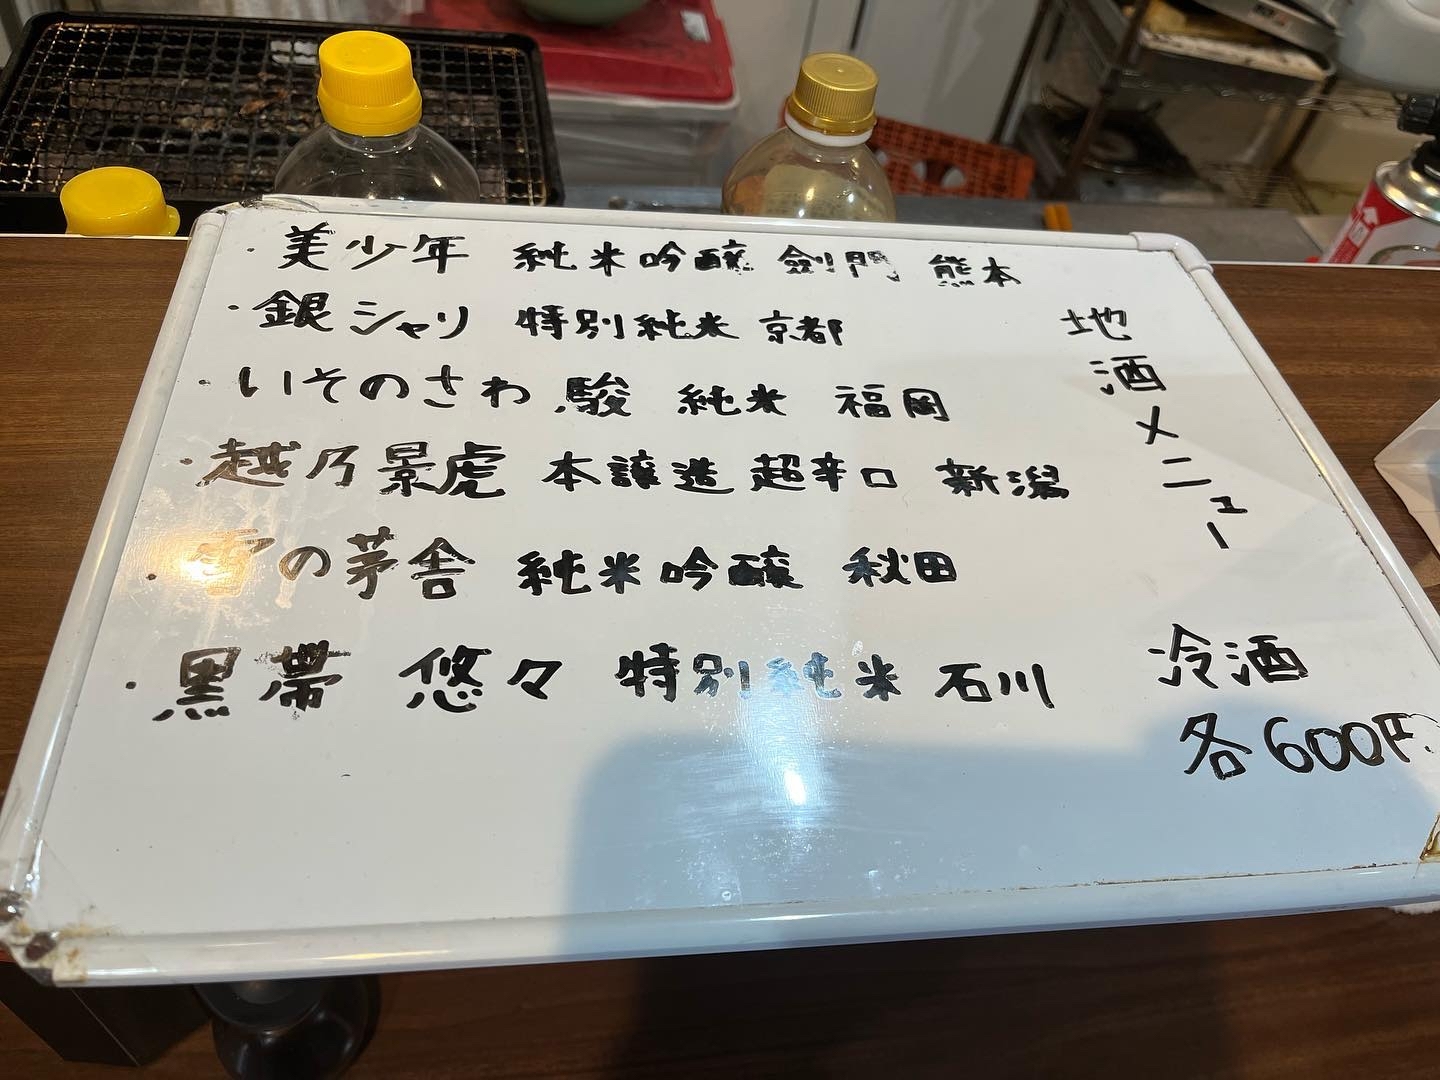 地酒メニュー
・美少年 純米吟醸 劍門 熊本
・銀シャリ 特別純米 京都
・いそのさわ 駿 純米 福岡
・越乃景虎 本譲造 超辛口 新潟
・雪の茅舎 純米吟醸 秋田
・黒帯 悠々 特別純米 石川
冷酒
各600円